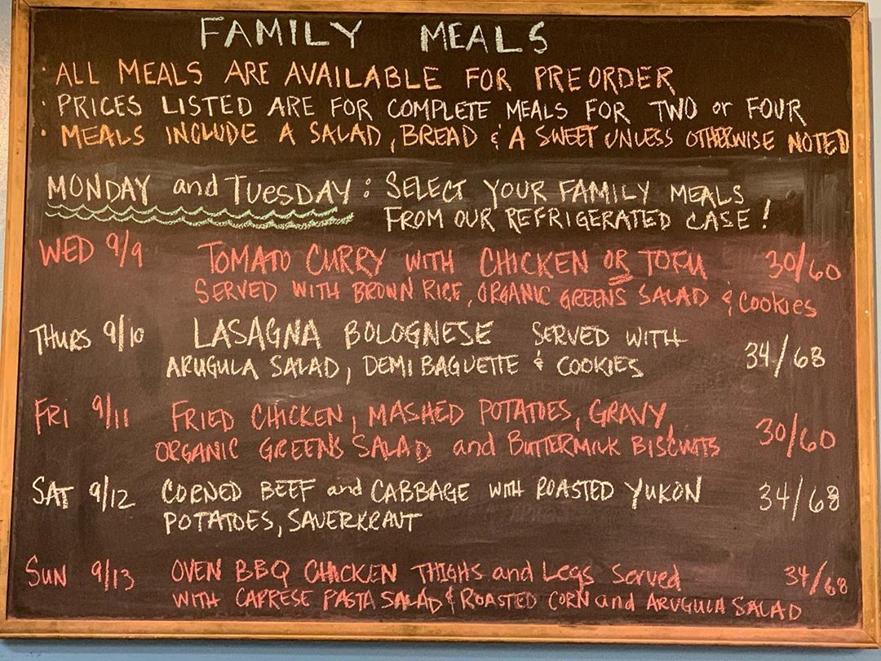 FAMILY MEALS
· ALL MEALS ARE AVAILABLE FOR PREORDER
· PRICES LISTED ARE FOR COMPLETE MEALS FOR TWO or FOUR
· MEALS INCLUDE A SALAD, BREAD & A SWEET UNLESS OTHERWISE NOTED
MONDAY and TUESDAY: SELECT YOUR FAMILY MEALS
FROM OUR REFRIGERATED CASE!
WED 9/9 TOMATO CURRY WITH CHICKEN OR TOFU 30/60
SERVED WITH BROWN RICE, ORGANIC GREENS SALAD & COOKIES
THURS 9/10 LASAGNA BOLOGNESE SERVED WITH 34/68
ARUGULA SALAD, DEMI BAGUETTE & COOKIES
FRI 9/11 FRIED CHICKEN, MASHED POTATOES, GRAVY, 30/60
ORGANIC GREENS SALAD and BUTTERMILK BISCUITS
SAT 9/12 CORNED BEEF and CABBAGE WITH ROASTED YUKON 34/68
POTATOES, SAUERKRAUT
SUN 9/13 OVEN BBQ CHICKEN THIGHS and Legs Served 34/68
WITH CAPRESE PASTA SALAD & ROASTED CORN and ARUGULA SALAD